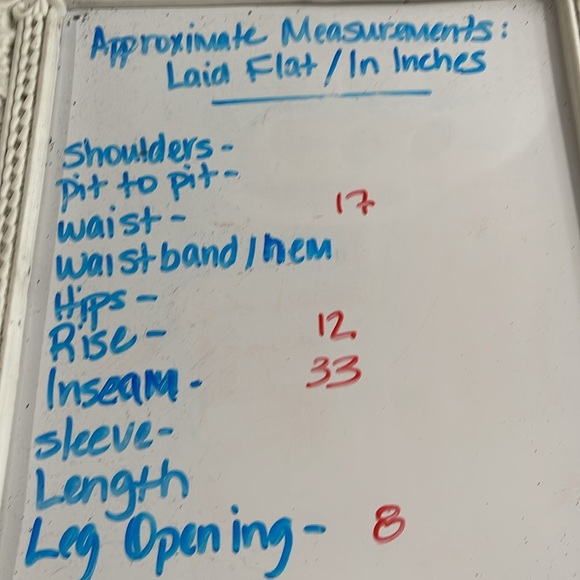 Approximate Measurements:
Laid Flat / In Inches
Shoulders -
pit to pit -
waist - 17
waistband / hem
Hips -
Rise - 12
Inseam - 33
sleeve -
Length
Leg Opening - 8